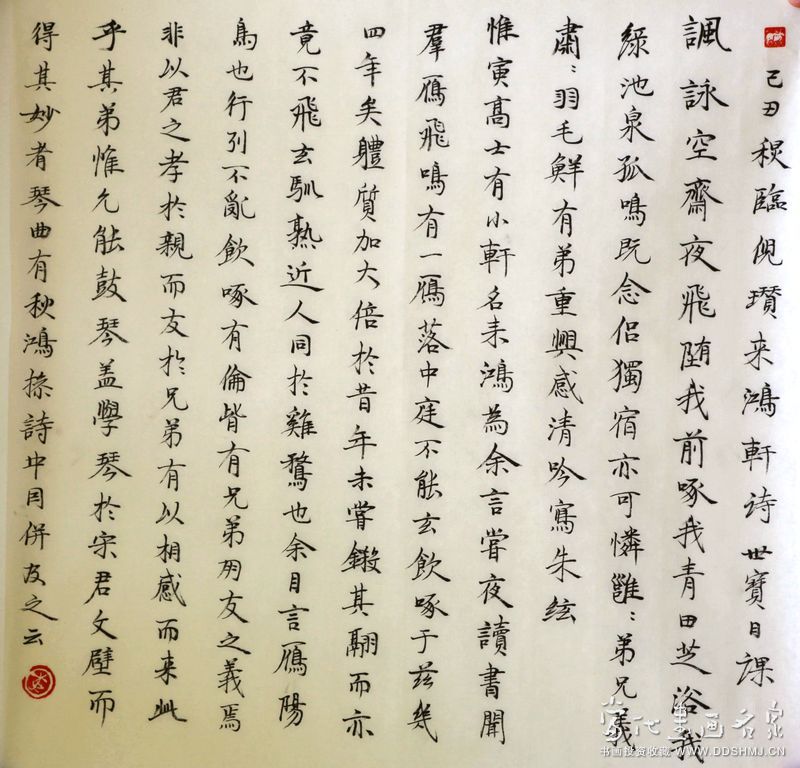 己丑秋臨倪瓚来鴻軒诗世寶日課
諷詠空齋夜飛随我前啄我青田芝浴我
緑池泉孤鳴既念侣獨宿亦可憐雝：弟兄義
肅：羽毛鮮有弟重興感清吟寫朱絃
惟寅高士有小軒名来鴻為余言嘗夜讀書聞
羣鴈飛鳴有一鴈落中庭不能去飲啄于兹幾
四年矣體質加大倍於昔年未嘗鎩其翮而亦
竟不飛去馴熟近人同於雞鶩也余目言鴈陽
鳥也行列不亂飲啄有倫皆有兄弟朋友之義焉
非以君之孝於親而友於兄弟有以相感而来此
乎其弟惟允能鼓琴盖學琴於宋君文壁而
得其妙者琴曲有秋鴻操詩中因併及之云
当代书画名家
书画投资收藏 WWW.DDSHMJ.CN